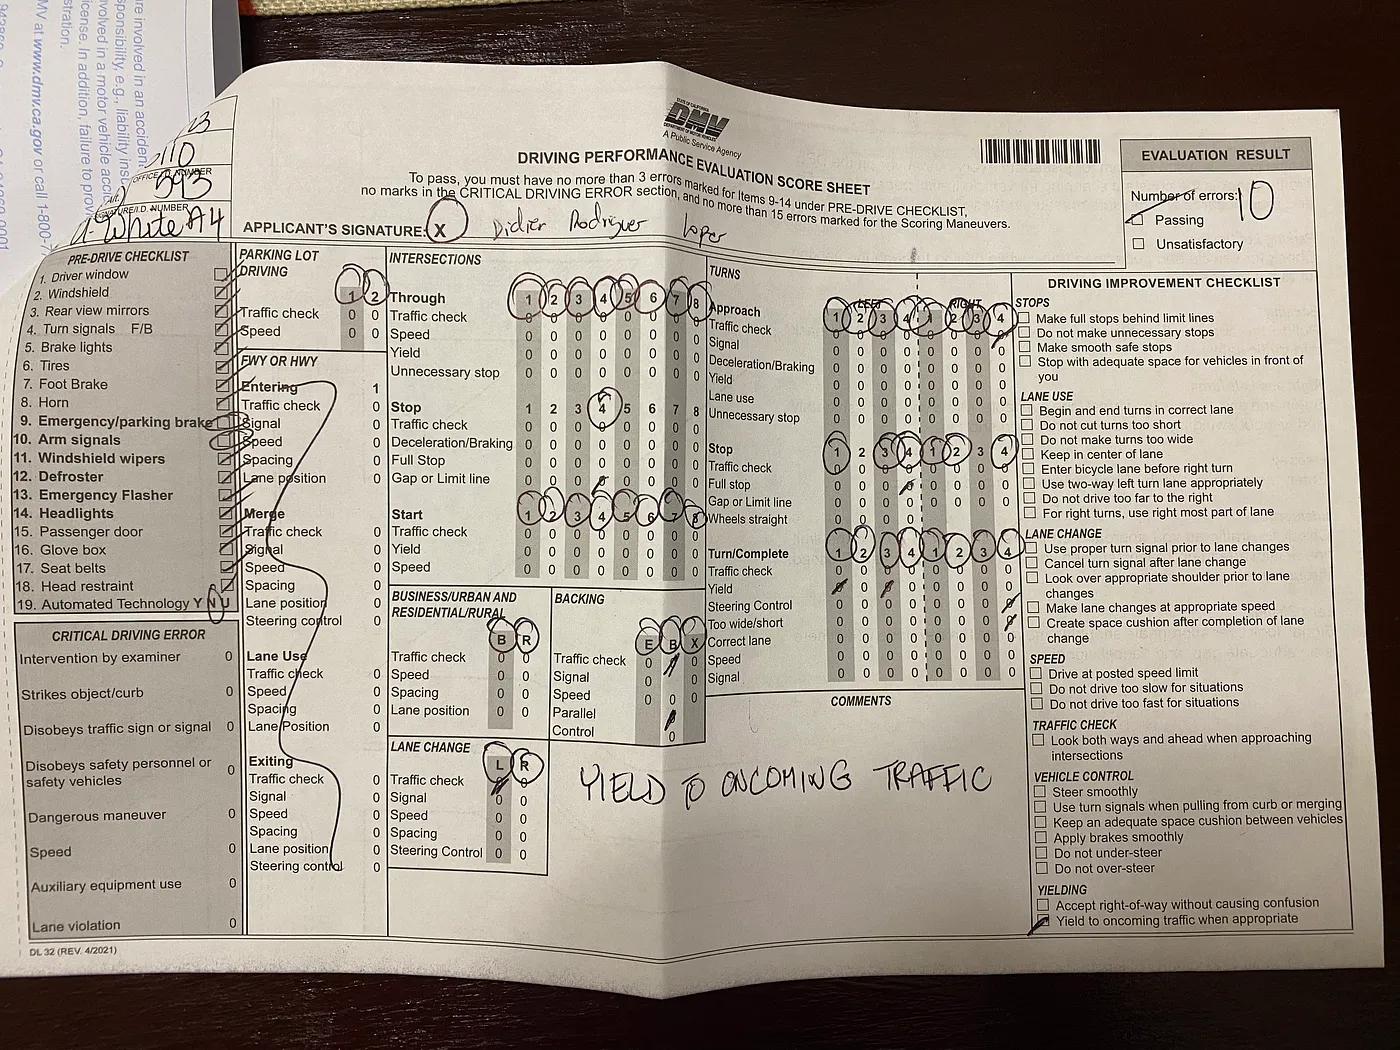 are involved in an accident
sponsibility, e.g., liability ins
volved in a motor vehicle acci
icense. In addition, failure to prov
stration.
MV at www.dmv.ca.gov or call 1-800-7
STATE OF CALIFORNIA
DMV
DEPARTMENT OF MOTOR VEHICLES
A Public Service Agency
DRIVING PERFORMANCE EVALUATION SCORE SHEET
To pass, you must have no more than 3 errors marked for Items 9-14 under PRE-DRIVE CHECKLIST,
no marks in the CRITICAL DRIVING ERROR section, and no more than 15 errors marked for the Scoring Maneuvers.
EVALUATION RESULT
Number of errors: 10
Passing
Unsatisfactory
23
110
OFFICE I.D. NUMBER
593
SIGNATURE/I.D. NUMBER
White A4
APPLICANT'S SIGNATURE: X Didier Rodriguez Lopez
PRE-DRIVE CHECKLIST
1. Driver window
2. Windshield
3. Rear view mirrors
4. Turn signals F/B
5. Brake lights
6. Tires
7. Foot Brake
8. Horn
9. Emergency/parking brake
10. Arm signals
11. Windshield wipers
12. Defroster
13. Emergency Flasher
14. Headlights
15. Passenger door
16. Glove box
17. Seat belts
18. Head restraint
19. Automated Technology Y N U
CRITICAL DRIVING ERROR
Intervention by examiner 0
Strikes object/curb 0
Disobeys traffic sign or signal 0
Disobeys safety personnel or
safety vehicles 0
Dangerous maneuver 0
Speed 0
Auxiliary equipment use 0
Lane violation 0
DL 32 (REV. 4/2021)
PARKING LOT
DRIVING 1 2
Traffic check 0 0
Speed 0 0
FWY OR HWY
Entering 1
Traffic check 0
Signal 0
Speed 0
Spacing 0
Lane position 0
Merge
Traffic check 0
Signal 0
Speed 0
Spacing 0
Lane position 0
Steering control 0
Lane Use
Traffic check 0
Speed 0
Spacing 0
Lane Position 0
Exiting
Traffic check 0
Signal 0
Speed 0
Spacing 0
Lane position 0
Steering control 0
INTERSECTIONS
Through 1 2 3 4 5 6 7 8
Traffic check 0 0 0 0 0 0 0 0
Speed 0 0 0 0 0 0 0 0
Yield 0 0 0 0 0 0 0 0
Unnecessary stop 0 0 0 0 0 0 0 0
Stop 1 2 3 4 5 6 7 8
Traffic check 0 0 0 0 0 0 0 0
Deceleration/Braking 0 0 0 0 0 0 0 0
Full Stop 0 0 0 0 0 0 0 0
Gap or Limit line 0 0 0 0 0 0 0 0
Start 1 2 3 4 5 6 7 8
Traffic check 0 0 0 0 0 0 0 0
Yield 0 0 0 0 0 0 0 0
Speed 0 0 0 0 0 0 0 0
BUSINESS/URBAN AND
RESIDENTIAL/RURAL
B R
Traffic check 0 0
Speed 0 0
Spacing 0 0
Lane position 0 0
LANE CHANGE
L R
Traffic check 0 0
Signal 0 0
Speed 0 0
Spacing 0 0
Steering Control 0 0
BACKING
E B X
Traffic check 0 0 0
Signal 0 0
Speed 0 0 0
Parallel 0
Control 0
TURNS
LEFT RIGHT
Approach 1 2 3 4 1 2 3 4
Traffic check 0 0 0 0 0 0 0 0
Signal 0 0 0 0 0 0 0 0
Deceleration/Braking 0 0 0 0 0 0 0 0
Yield 0 0 0 0 0 0 0 0
Lane use 0 0 0 0 0 0 0 0
Unnecessary stop 0 0 0 0 0 0 0 0
Stop 1 2 3 4 1 2 3 4
Traffic check 0 0 0 0 0 0 0 0
Full stop 0 0 0 0 0 0 0 0
Gap or Limit line 0 0 0 0 0 0 0 0
Wheels straight 0 0 0 0
Turn/Complete 1 2 3 4 1 2 3 4
Traffic check 0 0 0 0 0 0 0 0
Yield 0 0 0 0 0 0 0 0
Steering Control 0 0 0 0 0 0 0 0
Too wide/short 0 0 0 0 0 0 0 0
Correct lane 0 0 0 0 0 0 0 0
Speed 0 0 0 0 0 0 0 0
Signal 0 0 0 0 0 0 0 0
COMMENTS
YIELD TO ONCOMING TRAFFIC
DRIVING IMPROVEMENT CHECKLIST
STOPS
Make full stops behind limit lines
Do not make unnecessary stops
Make smooth safe stops
Stop with adequate space for vehicles in front of
you
LANE USE
Begin and end turns in correct lane
Do not cut turns too short
Do not make turns too wide
Keep in center of lane
Enter bicycle lane before right turn
Use two-way left turn lane appropriately
Do not drive too far to the right
For right turns, use right most part of lane
LANE CHANGE
Use proper turn signal prior to lane changes
Cancel turn signal after lane change
Look over appropriate shoulder prior to lane
changes
Make lane changes at appropriate speed
Create space cushion after completion of lane
change
SPEED
Drive at posted speed limit
Do not drive too slow for situations
Do not drive too fast for situations
TRAFFIC CHECK
Look both ways and ahead when approaching
intersections
VEHICLE CONTROL
Steer smoothly
Use turn signals when pulling from curb or merging
Keep an adequate space cushion between vehicles
Apply brakes smoothly
Do not under-steer
Do not over-steer
YIELDING
Accept right-of-way without causing confusion
Yield to oncoming traffic when appropriate